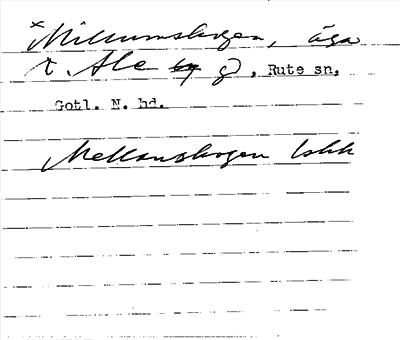 × Millumskogen, äga
t. Ale by g), Rute sn,
Gotl. N. hd.
Mellanskogen lskh